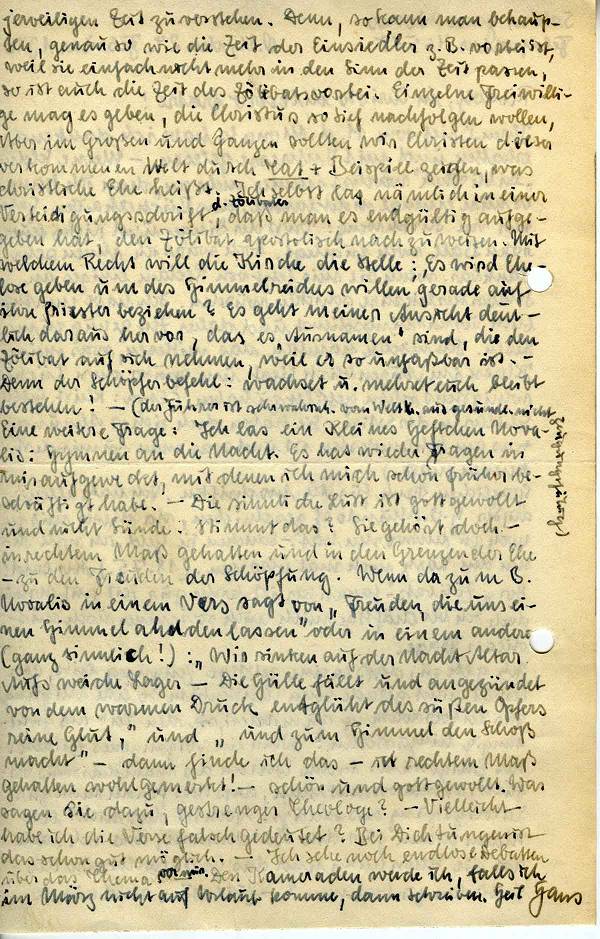 jeweiligen Zeit zu verstehen. Denn, so kann man behaup-
ten, genau so wie die Zeit der Einsiedler z. B. vorbei ist,
weil sie einfach nicht mehr in den Sinn der Zeit passen,
so ist auch die Zeit des Zölibats vorbei. Einzelne Freiwilli-
ge mag es geben, die Christus so tief nachfolgen wollen,
Aber im Großen und Ganzen sollten wir Christen dieser
verkommenen Welt durch Tat + Beispiel zeigen, was
christliche Ehe heißt. Ich selbst las nämlich in einer
Verteidigungsschrift d. Zölibates, daß man es endgültig aufge-
geben hat, den Zölibat apostolisch nachzuweisen. Mit
welchem Recht will die Kirche die Stelle: "Es wird Ehe-
lose geben um des Himmelreiches willen" gerade auf
ihre Priester beziehen? Es geht meiner Ansicht deut-
lich daraus hervor, das es "Ausnamen" sind, die den
Zölibat auf sich nehmen, weil er so unfaßbar ist. -
Denn der Schöpferbefehl: wachset u. mehret euch bleibt
bestehen! - (der Führer ist
Eine weitere Frage: Ich las ein kleines Heftchen Nova-
lis: Hymnen an die Nacht. Es hat wieder Fragen in
mir aufgeweckt, mit denen ich mich schon früher be-
schäftigt habe. - Die sinnliche Lust ist gottgewollt
und nicht Sünde. Stimmt das? Sie gehört doch -
in rechtem Maß gehalten und in den Grenzen der Ehe
- zu den Freuden der Schöpfung. Wenn da z um B.
Novalis in einem Vers sagt von "Freuden, die uns ei-
nen Himmel ahnden lassen" oder in einem andern
(ganz sinnlich!): "Wir sinken auf der Nacht Altar
Aufs weiche Lager - Die Hülle fällt und angezündet
von dem warmen Druck entglüht des süßen Opfers
reine Glut," und " und zum Himmel den Schoß
macht" - dann finde ich das - in rechtem Maß
gehalten wohlgemerkt! - schön und gottgewollt. Was
sagen Sie dazu, gestrenger Theologe? - Vielleicht
habe ich die Verse falsch gedeutet? Bei Dichtungen ist
das schon gut möglich. - Ich sehe noch endlose Debatten
über das Thema vor mir. Den Kameraden werde ich, falls ich
im März nicht auf Urlaub komme, dann schreiben. Heil Hans